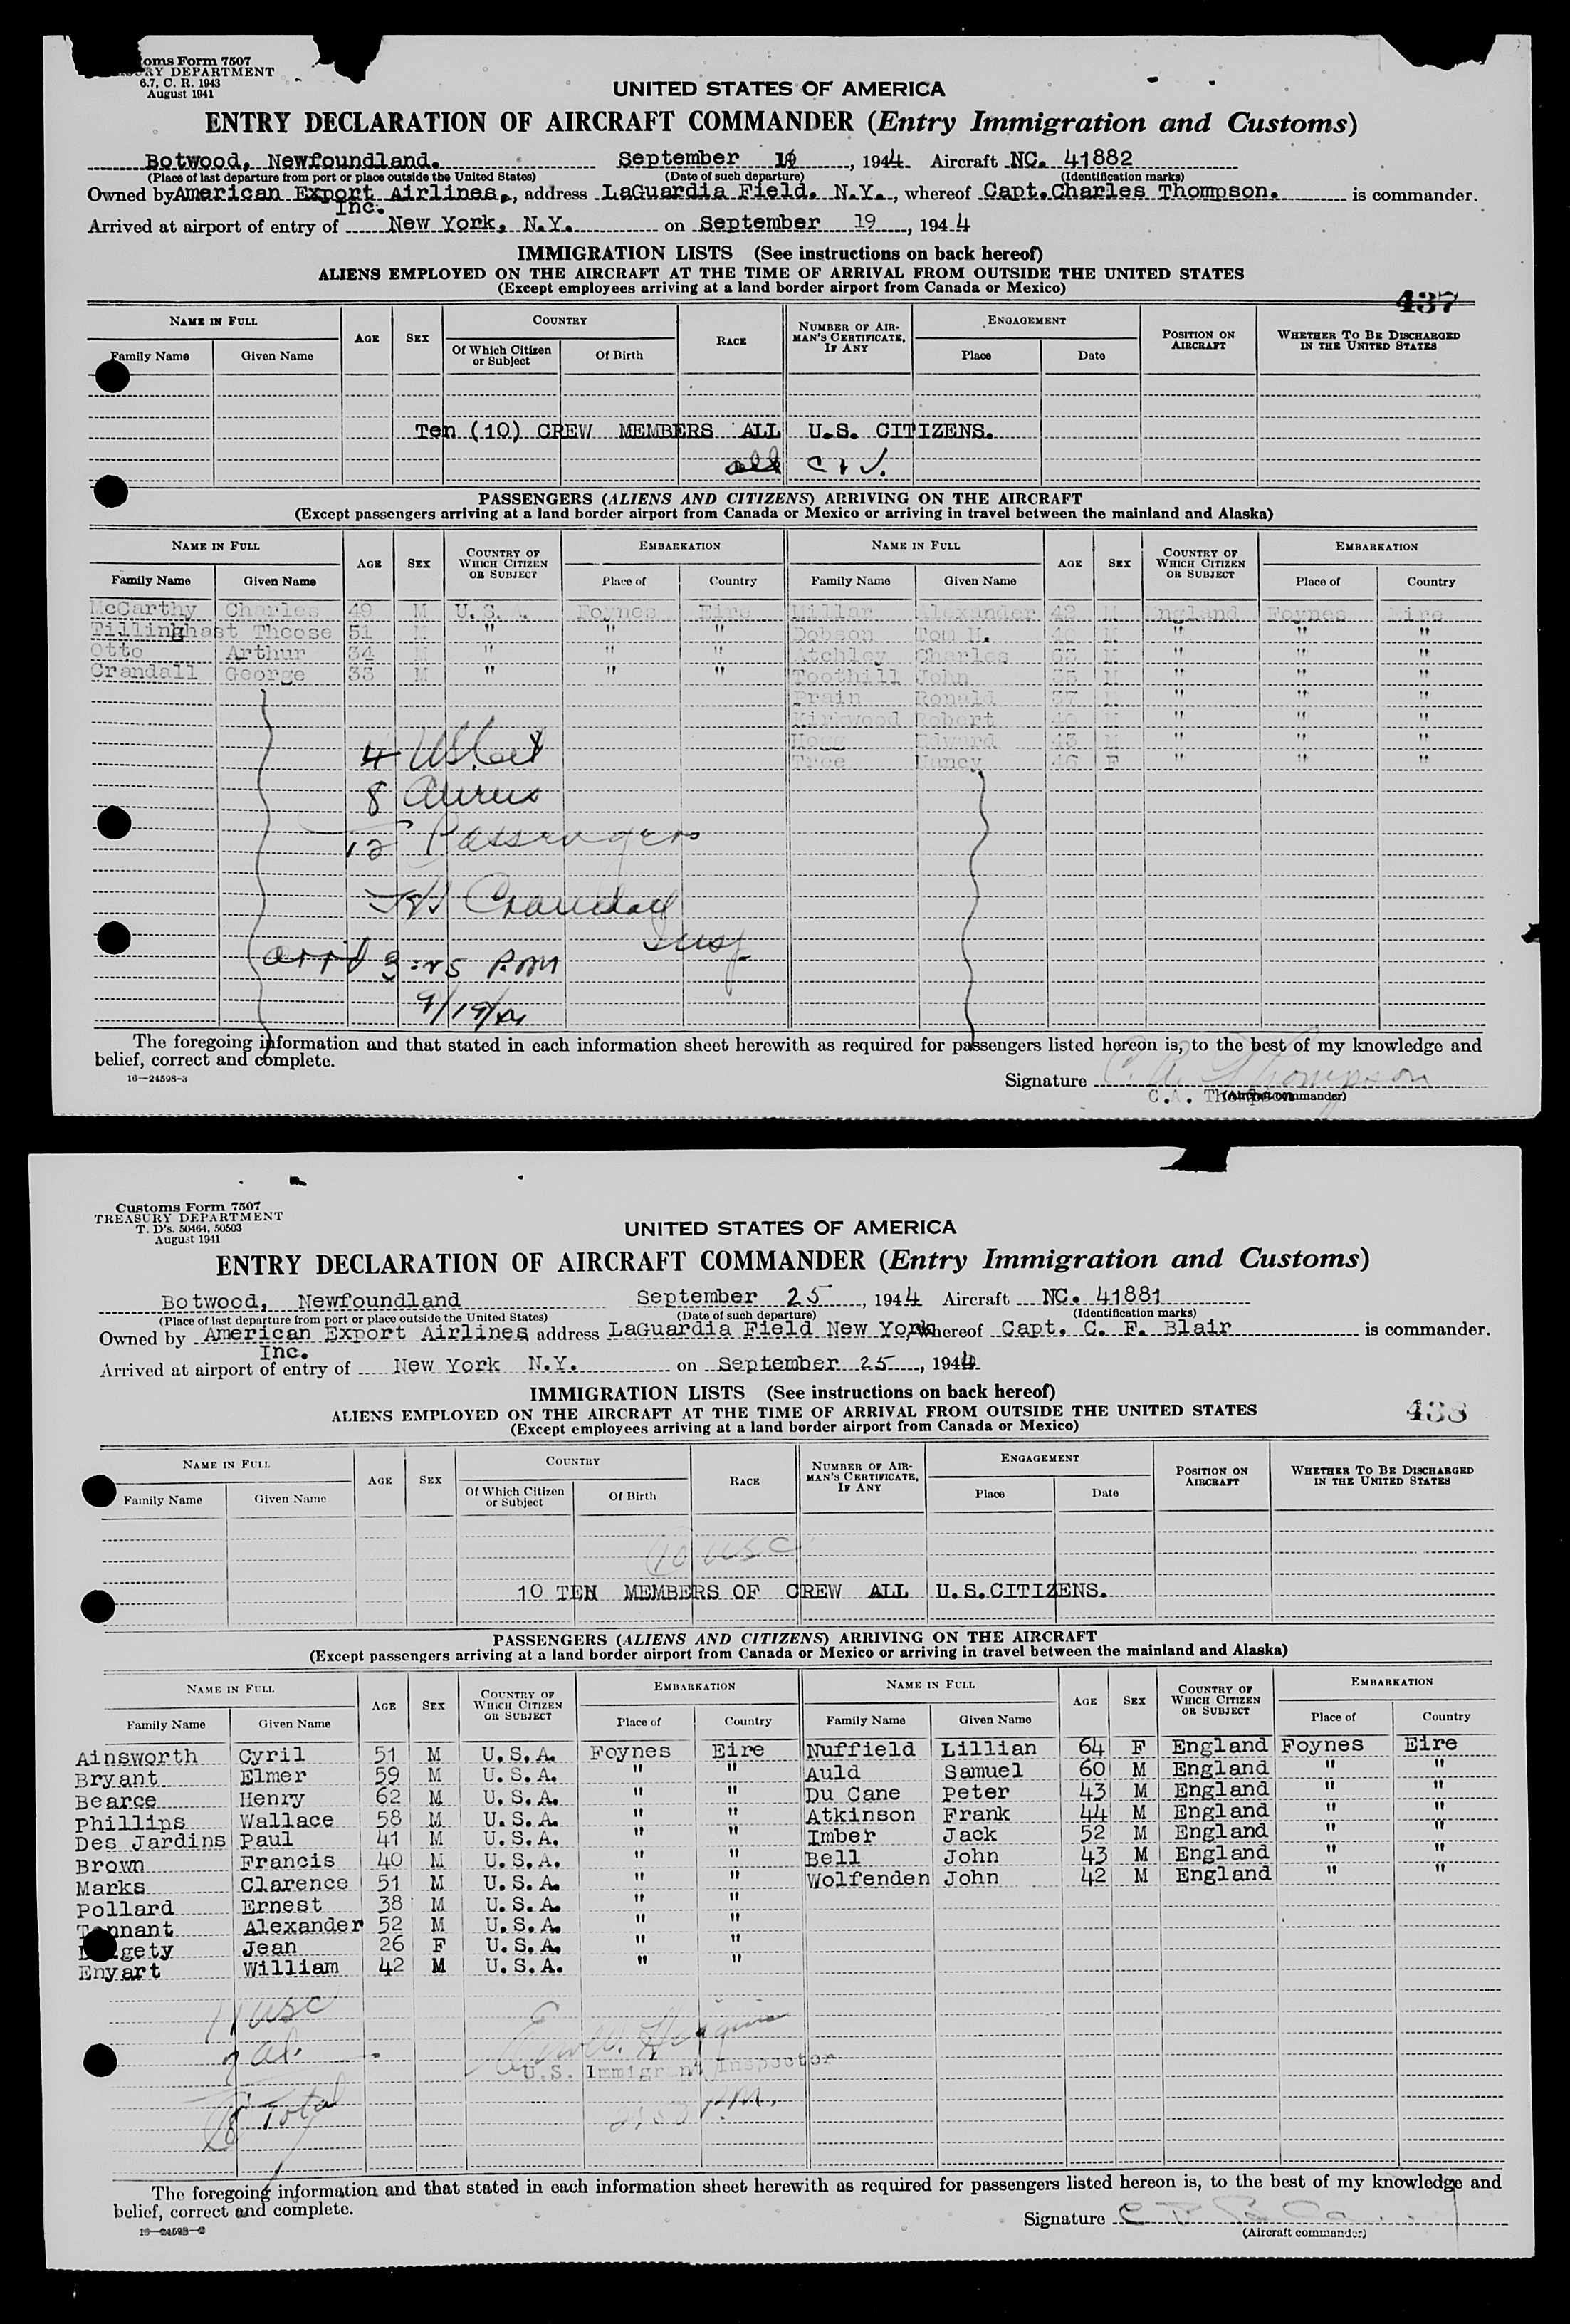 oms Form 7507
RY DEPARTMENT
6.7, C. R. 1943
August 1941
UNITED STATES OF AMERICA
ENTRY DECLARATION OF AIRCRAFT COMMANDER (Entry Immigration and Customs)
Botwood, Newfoundland. September , 1944 Aircraft NC. 41882
(Place of last departure from port or place outside the United States) (Date of such departure) (Identification marks)
Owned by American Export Airlines, Inc., address LaGuardia Field. N.Y., whereof Capt. Charles Thompson. is commander.
Arrived at airport of entry of New York, N.Y. on September 19, 1944
IMMIGRATION LISTS (See instructions on back hereof)
ALIENS EMPLOYED ON THE AIRCRAFT AT THE TIME OF ARRIVAL FROM OUTSIDE THE UNITED STATES
(Except employees arriving at a land border airport from Canada or Mexico)
437
NAME IN FULL AGE SEX COUNTRY RACE NUMBER OF AIRMAN'S CERTIFICATE, IF ANY ENGAGEMENT POSITION ON AIRCRAFT WHETHER TO BE DISCHARGED IN THE UNITED STATES
Family Name Given Name Of Which Citizen or Subject Of Birth Place Date
Ten (10) CREW MEMBERS ALL U.S. CITIZENS.
all
PASSENGERS (ALIENS AND CITIZENS) ARRIVING ON THE AIRCRAFT
(Except passengers arriving at a land border airport from Canada or Mexico or arriving in travel between the mainland and Alaska)
NAME IN FULL AGE SEX COUNTRY OF WHICH CITIZEN OR SUBJECT EMBARKATION NAME IN FULL AGE SEX COUNTRY OF WHICH CITIZEN OR SUBJECT EMBARKATION
Family Name Given Name Place of Country Family Name Given Name Place of Country
McCarthy Charles 49 M U.S.A. Foynes Eire Millar Alexander 42 M England Foynes Eire
Tillinghast Theose 51 M " " " Dobson Tom U. M " " "
Otto Arthur 34 M " " " Atchley Charles 63 M " " "
Crandall George 33 M " " " Toothill John M " " "
Prain Ronald 37 M " " "
Kirkwood Robert M " " "
Hogg Edward 43 M " " "
Tree Nancy 46 F " " "
4
8 Aliens
12 Passengers
Crandall
Insp
arr'd 3:25 P.M
9/19/44
The foregoing information and that stated in each information sheet herewith as required for passengers listed hereon is, to the best of my knowledge and
belief, correct and complete.
16—24598-3
Signature C. A. Thompson
C.A. Thompson (Aircraft commander)
Customs Form 7507
TREASURY DEPARTMENT
T. D's. 50464, 50503
August 1941
UNITED STATES OF AMERICA
ENTRY DECLARATION OF AIRCRAFT COMMANDER (Entry Immigration and Customs)
Botwood, Newfoundland September 25, 1944 Aircraft NC. 41881
(Place of last departure from port or place outside the United States) (Date of such departure) (Identification marks)
Owned by American Export Airlines Inc. address LaGuardia Field New York, whereof Capt. C. F. Blair is commander.
Arrived at airport of entry of New York N.Y. on September 25, 1944
IMMIGRATION LISTS (See instructions on back hereof)
ALIENS EMPLOYED ON THE AIRCRAFT AT THE TIME OF ARRIVAL FROM OUTSIDE THE UNITED STATES
(Except employees arriving at a land border airport from Canada or Mexico)
438
NAME IN FULL AGE SEX COUNTRY RACE NUMBER OF AIRMAN'S CERTIFICATE, IF ANY ENGAGEMENT POSITION ON AIRCRAFT WHETHER TO BE DISCHARGED IN THE UNITED STATES
Family Name Given Name Of Which Citizen or Subject Of Birth Place Date
10 USC
10 TEN MEMBERS OF CREW ALL U.S.CITIZENS.
PASSENGERS (ALIENS AND CITIZENS) ARRIVING ON THE AIRCRAFT
(Except passengers arriving at a land border airport from Canada or Mexico or arriving in travel between the mainland and Alaska)
NAME IN FULL AGE SEX COUNTRY OF WHICH CITIZEN OR SUBJECT EMBARKATION NAME IN FULL AGE SEX COUNTRY OF WHICH CITIZEN OR SUBJECT EMBARKATION
Family Name Given Name Place of Country Family Name Given Name Place of Country
Ainsworth Cyril 51 M U.S.A. Foynes Eire Nuffield Lillian 64 F England Foynes Eire
Bryant Elmer 59 M U.S.A. " " Auld Samuel 60 M England " "
Bearce Henry 62 M U.S.A. " " Du Cane Peter 43 M England " "
Phillips Wallace 58 M U.S.A. " " Atkinson Frank 44 M England " "
Des Jardins Paul 41 M U.S.A. " " Imber Jack 52 M England " "
Brown Francis 40 M U.S.A. " " Bell John 43 M England " "
Marks Clarence 51 M U.S.A. " " Wolfenden John 42 M England " "
Pollard Ernest 38 M U.S.A. " "
Tennant Alexander 52 M U.S.A. " "
gety Jean 26 F U.S.A. " "
Enyart William 42 M U.S.A. " "
11 USC
7 al.
18 Total
U.S. Immigrant Inspector
P.M.
The foregoing information and that stated in each information sheet herewith as required for passengers listed hereon is, to the best of my knowledge and
belief, correct and complete.
16—24598-2
Signature
(Aircraft commander)